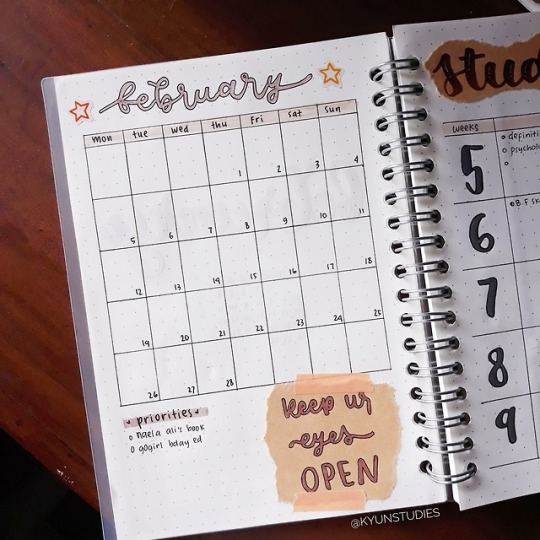 february
mon tue wed thu fri sat sun
1 2 3 4
5 6 7 8 9 10 11
12 13 14 15 16 17 18
19 20 21 22 23 24 25
26 27 28
priorities
naela ali's book
gogirl bday ed
keep ur
eyes
OPEN
Stud
weeks
5
definiti
psycholo
6
B.F. Sk
7
8
9
@KYUNSTUDIES